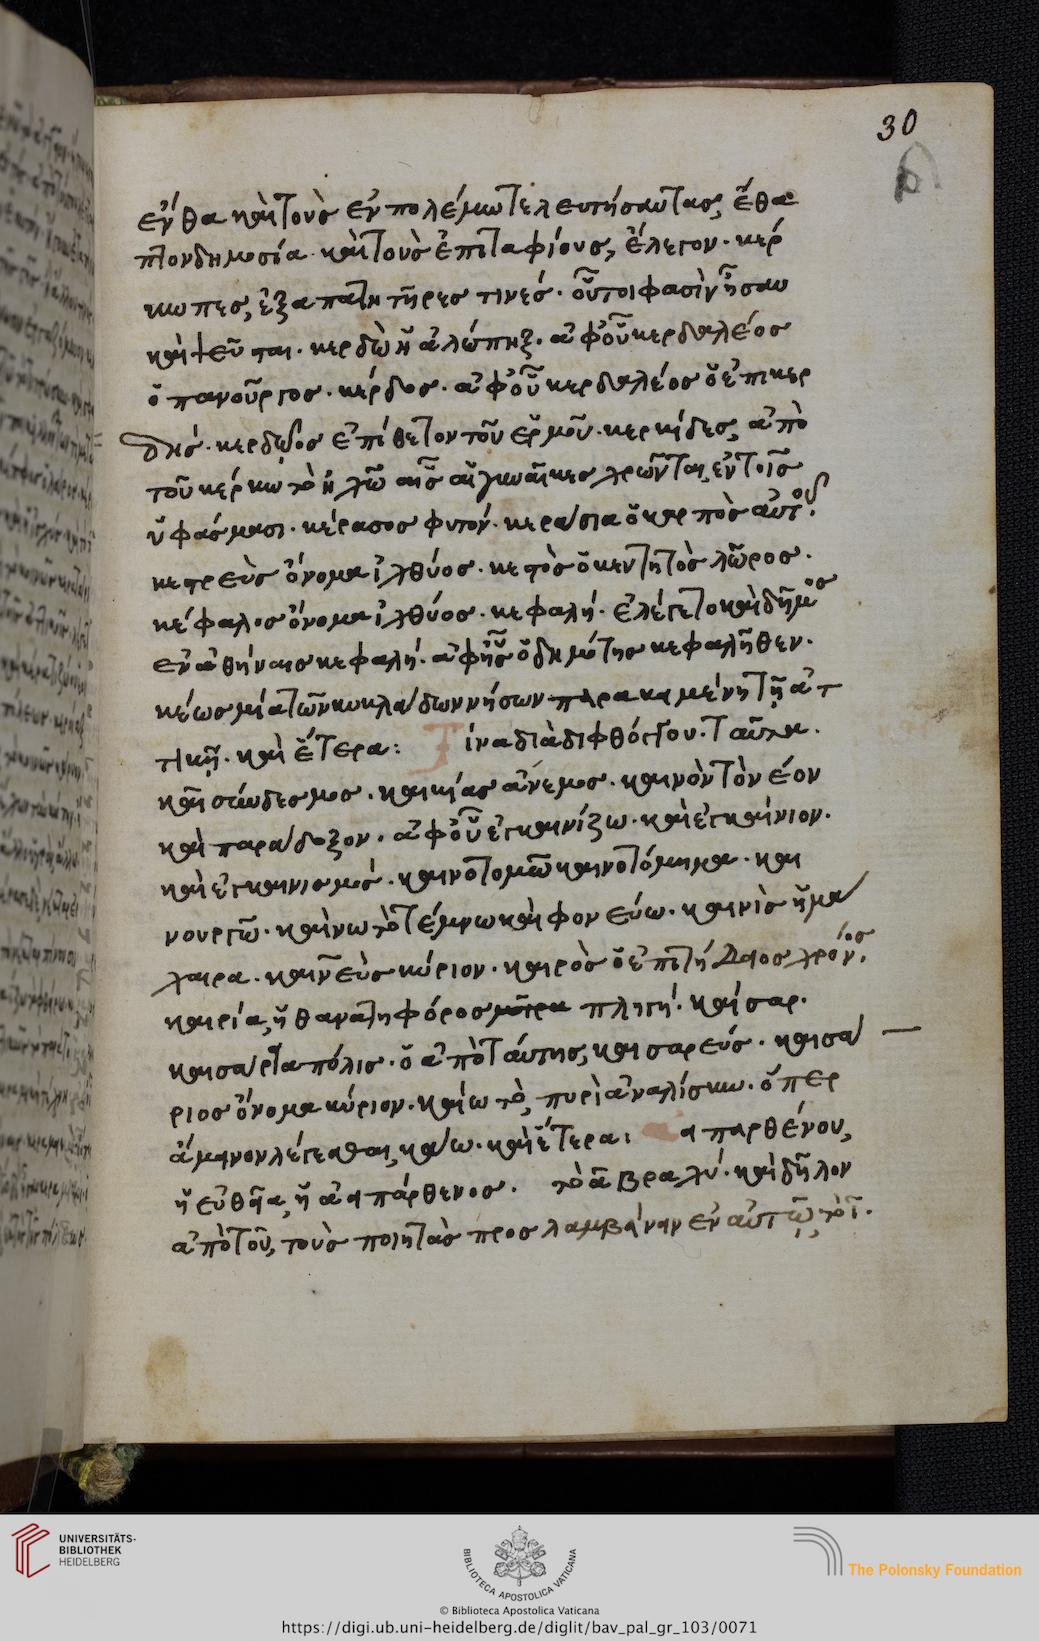 30
ἔνθα καὶ τοὺς ἐν πολέμω τελευτήσαντας, ἔθα
πτον δημοσία· καὶ τοὺς ἐπιταφίους, ἔλεγον· κέρ
κωπες, ἐξαπατητῆρες τινές· οὗτοι φασὶν ἦσαν
καὶ ψεῦται· κερδὼ ἡ ἀλώπηξ· ἀφ' οὗ κερδαλέος
ὁ πανοῦργος· κέρδος· ἀφ' οὗ κερδαλέος ὁ ἐπικερ
δής· κερδῶος ἐπίθετον τοῦ ἑρμοῦ· κερκίδες, ἀπὸ
τοῦ κέρκω τὸ ἠχῶ αἷς αἱ γυναῖκες χρῶνται, ἐν τοῖς
ὑφάσμασι· κέρασος φυτόν· κεράσια ὁ καρπὸς αὐτοῦ·
κετρεὺς ὄνομα ἰχθύος· κεστὸς ὁ κεντητὸς λῶρος·
κέφαλος ὄνομα ἰχθύος· κεφαλή· ἐλέγετο καὶ δῆμος
ἐν ἀθήναις κεφαλή· ἀφ' ἧς ὁ δημότης κεφαλῆθεν·
κέως μία τῶν κυκλάδων νήσων παρακειμένη τῆ ἀτ
τικῆ· καὶ ἕτερα: Τίνα διὰ διφθόγγου· Ταῦτα·
καὶ σύνδεσμος· καικίας ἄνεμος· καινὸν τὸν νέον
καὶ παράδοξον· ἀφ' οὗ ἐγκαινίζω· καὶ ἐγκαίνιον·
καὶ ἐγκαινισμός· καινοτομῶ καινοτόμημα· και
νουργῶ· καίνω τὸ τέμνω καὶ φονεύω· καινὶς ἡ μά
χαιρα· καινεὺς κύριον· καιρὸς ὁ ἐπιτήδειος χρόνος·
καιρία, ἡ θανατηφόρος πληγή· καίσαρ·
καισάρεια πόλις· ὁ ἀπὸ ταύτης, καισαρεύς· καισά
ριος ὄνομα κύριον· καίω τὸ, πυρὶ ἀναλίσκω· ὅπερ
ἄμεινον λέγεσθαι, κάω· καὶ ἕτερα: αι παρθένου,
ἡ εὐθεῖα, ἡ ἀει πάρθενος· τὸ ᾱ βραχύ· καὶ δῆλον
ἀπὸ τοῦ, τοὺς ποιητὰς προσλαμβάνειν ἐν αὐτῶ, τὸ ῑ·
UNIVERSITÄTS-
BIBLIOTHEK
HEIDELBERG
BIBLIOTECA APOSTOLICA VATICANA
The Polonsky Foundation
© Biblioteca Apostolica Vaticana
https://digi.ub.uni-heidelberg.de/diglit/bav_pal_gr_103/0071